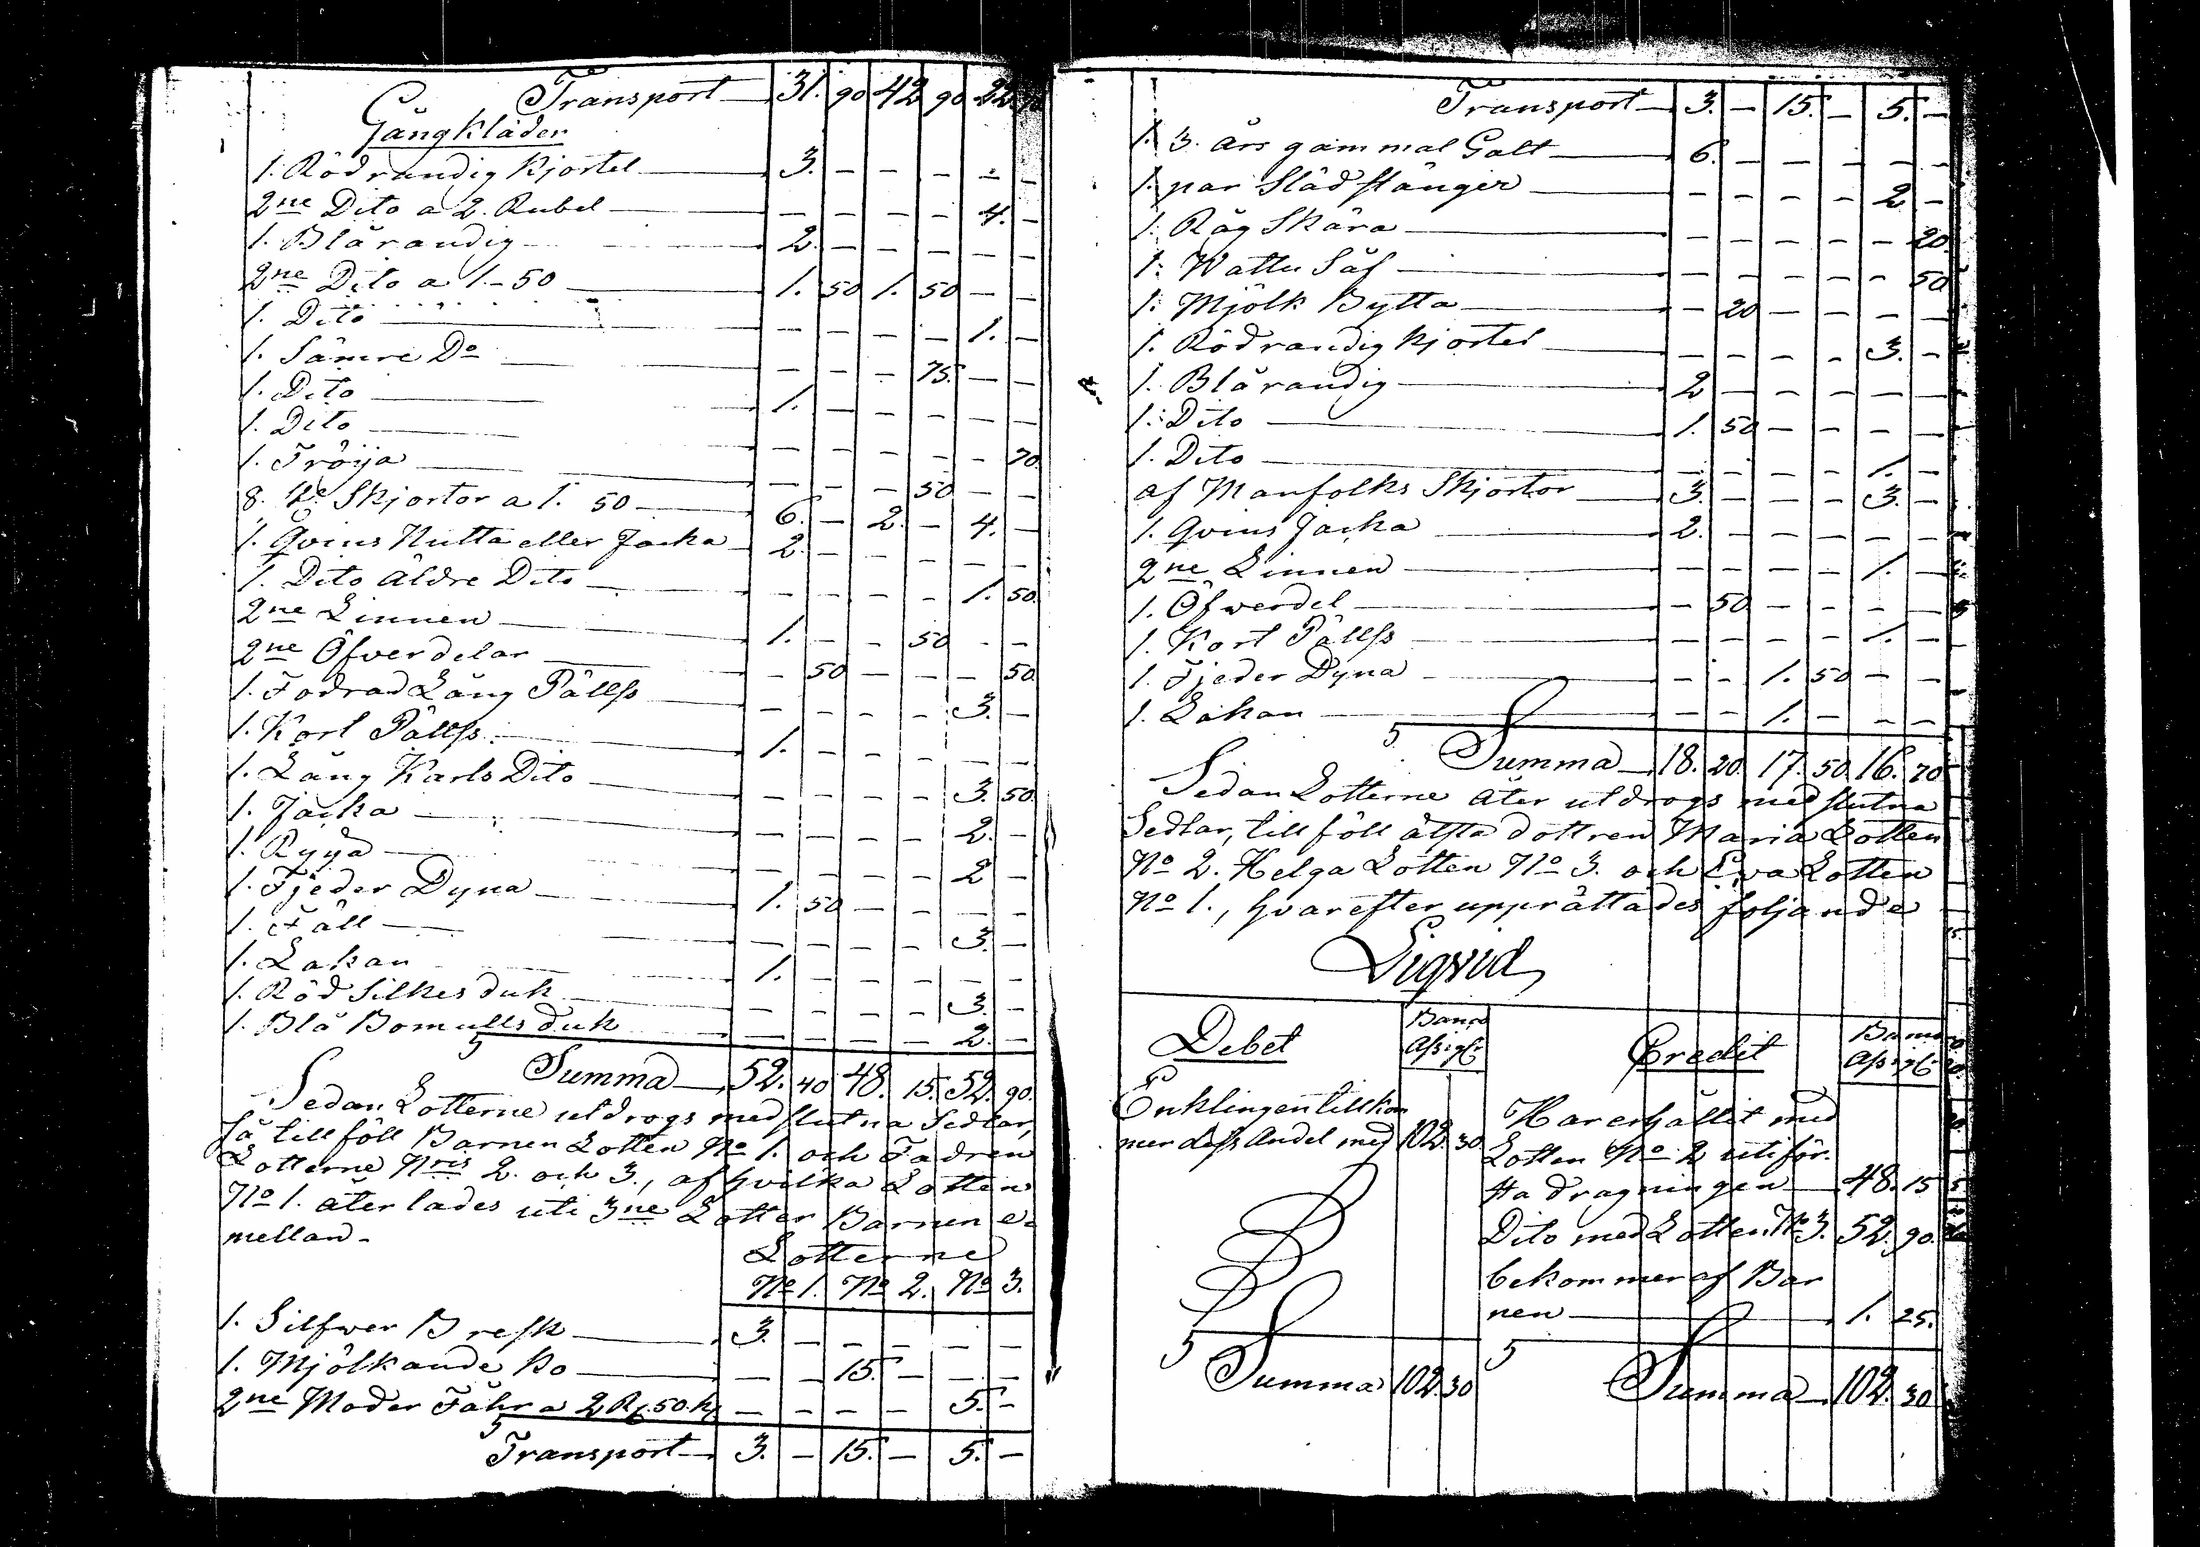 Transport 31. 90 42 90 22.
Gångkläder
1. Rödrandig Kjortel 3. - - - - -
2ne Dito a 2. Rubel - - - - 4. -
1. Blårandig 2. - - - - -
2ne Dito a 1.-50 1. 50 1. 50 - -
1. Dito - - - - 1. -
1. Sämre Do - - - 75. - -
1. Dito 1. - - - - -
1. Dito - - - - - 70.
1. Tröija - - - 50 - -
8. Skjortor a 1. 50 6. - 2. - 4. -
1. Qvins Nutta eller Jacka 2. - - - - -
1. Dito äldre Dito - - - - 1. 50.
2ne Linnen 1. - - 50 - -
2ne Öfverdelar - 50 - - - 50.
1. Fodrad Lång Pällss - - - - 3. -
1. Kort Pällss. 1. - - - - -
1. Lång Karls Dito - - - - 3. 50.
1. Jacka - - - - 2. -
1. Ryya - - - - 2 -
1. Fjeder Dyna 1. 50 - - - -
1. Fäll - - - - 3. -
1. Lakan 1. - - - - -
1. Röd Silkes duk - - - - 3. -
1. Blå Bomulls duk - - - - 2. -
Summa 52. 40 48. 15. 52. 90.
Sedan Lotterne utdrogs med slutna Sedlar,
så tillföll Barnen Lotten No 1. och Fadren
Lotterne Nris 2. och 3., af hvilka Lotten
No 1. åter lades uti 3ne Lotter Barnen e-
mellan.
Lotterne
No 1. No 2. No 3.
1. Silfwer Bresk 3. - - - - -
1. Mjölkande Ko - - 15. - - -
2ne Moder Fåhr a 2 R. 50. k - - - - 5. -
Transport 3. - 15. - 5. -
Transport 3. - 15. - 5. -
1. 3. Års gammal Galt 6. - - - - -
1. par Slädstänger - - - - 2 -
1. Råg Skära - - - - - 20.
1. Wattu Såf - - - - - 50
1. Mjölk Bytta - 20 - - - -
1. Rödrandig Kjortel - - - - 3. -
1. Blårandig 2 - - - - -
1. Dito 1. 50 - - - -
1. Dito - - - - 1. -
af Manfolks Skjortor 3. - - - 3. -
1. Qvins Jacka 2. - - - - -
2ne Linnen - - - - 1. -
1. Öfwerdel - 50 - - - -
1. Kort Pällss - - - - 1. -
1. Fjeder Dyna - - 1. 50 - -
1. Lakan - - 1. - - -
Summa 18. 20. 17. 50 16. 70
Sedan Lotterne åter utdrogs med slutna
Sedlar, tillföll älsta dottren Maria Lotten
No 2. Helga Lotten No 3. och Eva Lotten
No 1., hvarefter upprättades följande
Liqvid,
Debet Banco Assigr. Credit Banco Assigr.
Enklingen tillkom
mer dess Andel med 102. 30.
Har erhållit med
Lotten No 2 uti för-
sta dragningen 48. 15
Dito med Lotten No 3. 52. 90.
bekommer af Bar
nen 1. 25.
Summa 102. 30
Summa 102. 30